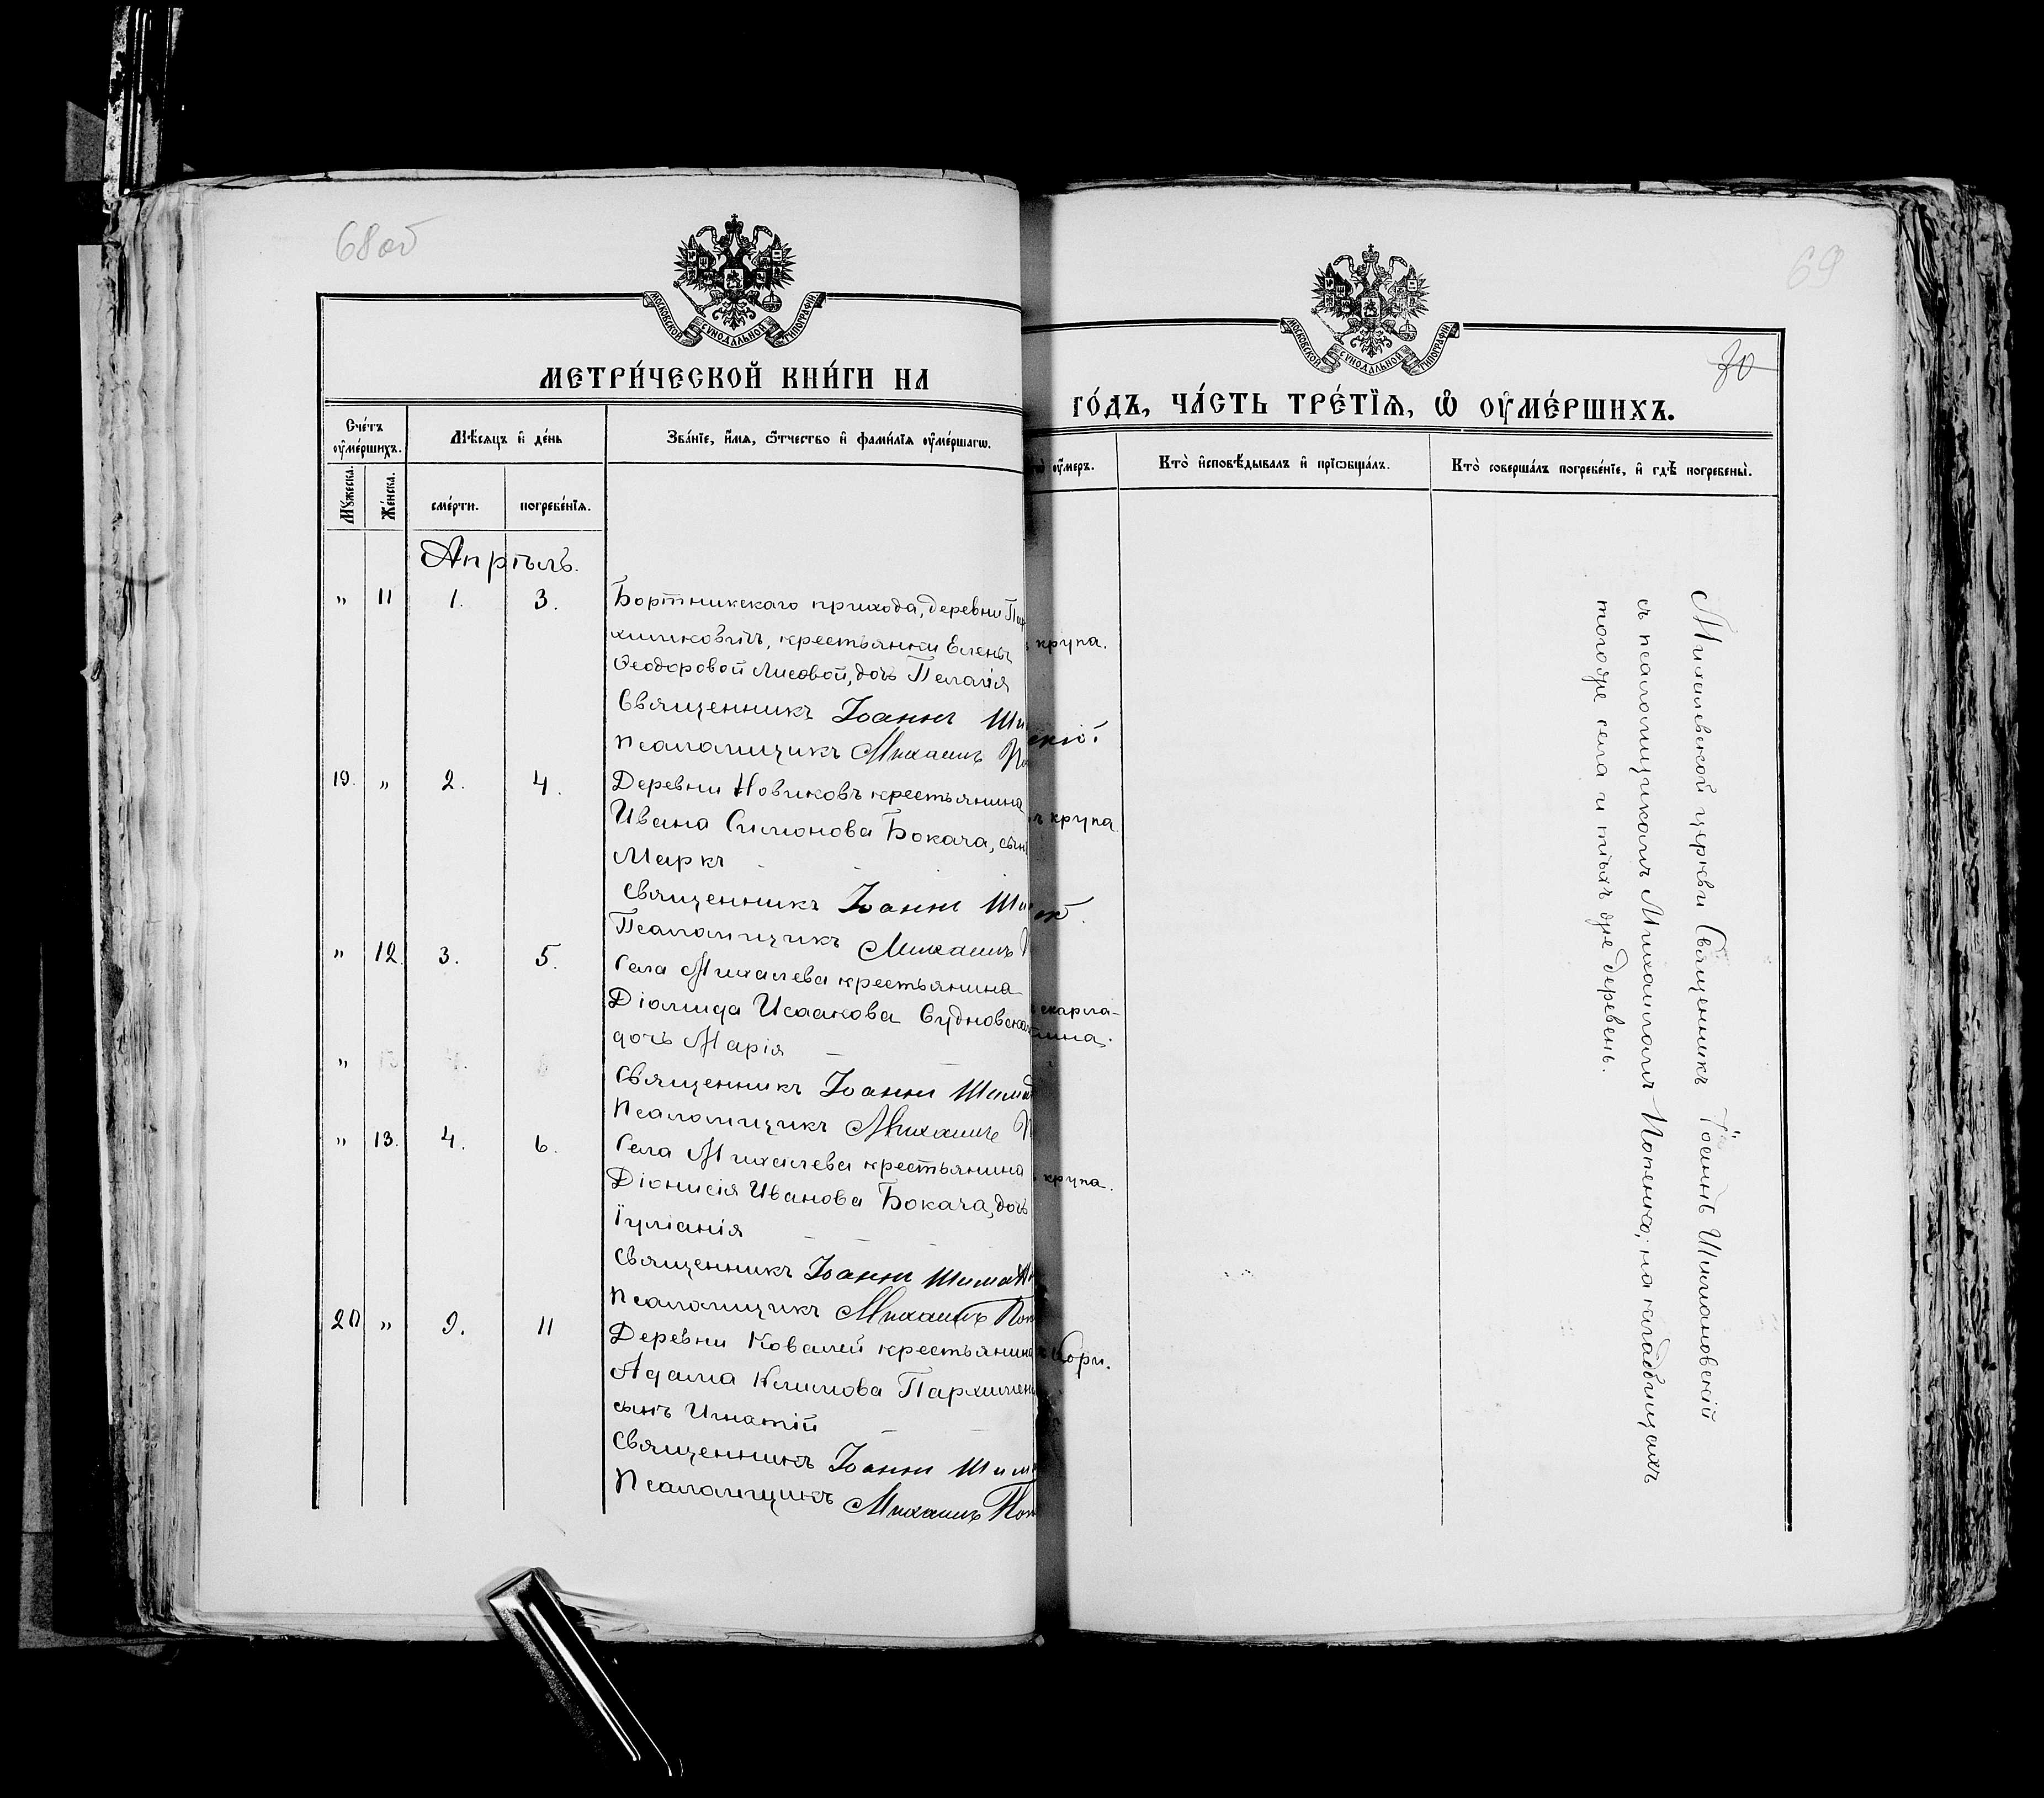 68об
МОСКОВСКОЙ СѴНОДАЛЬНОЙ ТИПОГРАФІИ.
МЕТРИ́ЧЕСКОЙ КНИ́ГИ НА
Сче́тъ ᲂу҆ме́ршихъ.
Мѣ́сяцъ и҆ де́нь
Зва́нїе, и҆́мя, ѻ҆́тчество и҆ фами́лїя ᲂу҆ме́ршагѡ.
Мꙋ́жеска.
Же́нска.
сме́рти.
погребе́нїя.
Апрѣль.
" 11 1. 3. Бортникскаго прихода, деревни Пар
химковичъ, крестьянки Елены
Ѳеодоровой Лисовой, дочь Пелагія
Священникъ Іоаннъ Ши
Псаломщикъ Михаилъ По
19. " 2. 4. Деревни Новиковъ крестьянина
Ивана Симонова Бокача, сынъ
Маркъ
Священникъ Іоаннъ Ши
Псаломщикъ Михаилъ
" 12. 3. 5. Села Михалева крестьянина
Діомида Исаакова Судновска
дочь Марія
"
Священникъ Іоаннъ Шима
Псаломщикъ Михаилъ
" 13. 4. 6. Села Михалева крестьянина
Діонисія Иванова Бокача, дочь
Іуліанія
Священникъ Іоаннъ Шима
Псаломщикъ Михаилъ Поп
20 " 9. 11 Деревни Ковалей крестьянина
Адама Климова Пархимен
сынъ Игнатій
Священникъ Іоаннъ Шим
Псаломщикъ Михаилъ Поп
69
70
МОСКОВСКОЙ СѴНОДАЛЬНОЙ ТИПОГРАФІИ.
ГО́ДЪ, ЧА́СТЬ ТРЕ́ТЇѦ, Ѡ҆ ОУ҆МЕ́РШИХЪ.
ᲂу҆́меръ.
Кто̀ и҆сповѣ́дывалъ и҆ прїѡбща́лъ.
Кто̀ соверша́лъ погребе́нїе, и҆ гдѣ̀ погребены̀.
крупа.
скій.
крупа
ск
скарла-
тина.
крупа.
кори.
Михалевской церкви Священникъ Іоаннъ Шимановскій
съ псаломщикомъ Михаиломъ Попенко; на кладбищахъ
тогоже села и тѣхъ же деревень.